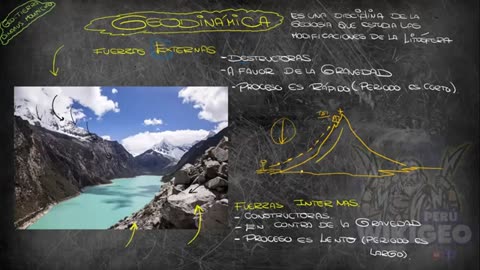 GEO: TIERRA
GEODINÁMICA
ES UNA DISCIPLINA DE LA
GEOLOGÍA QUE ESTUDIA LAS
MODIFICACIONES DE LA LITÓSFERA
FUERZAS EXTERNAS
- DESTRUCTORAS
- A FAVOR DE LA GRAVEDAD
- PROCESO ES RÁPIDO (PERIODO ES CORTO).
FUERZAS INTERNAS
- CONSTRUCTORAS
- EN CONTRA DE LA GRAVEDAD
- PROCESO ES LENTO (PERIODO ES
LARGO).
PERÚ